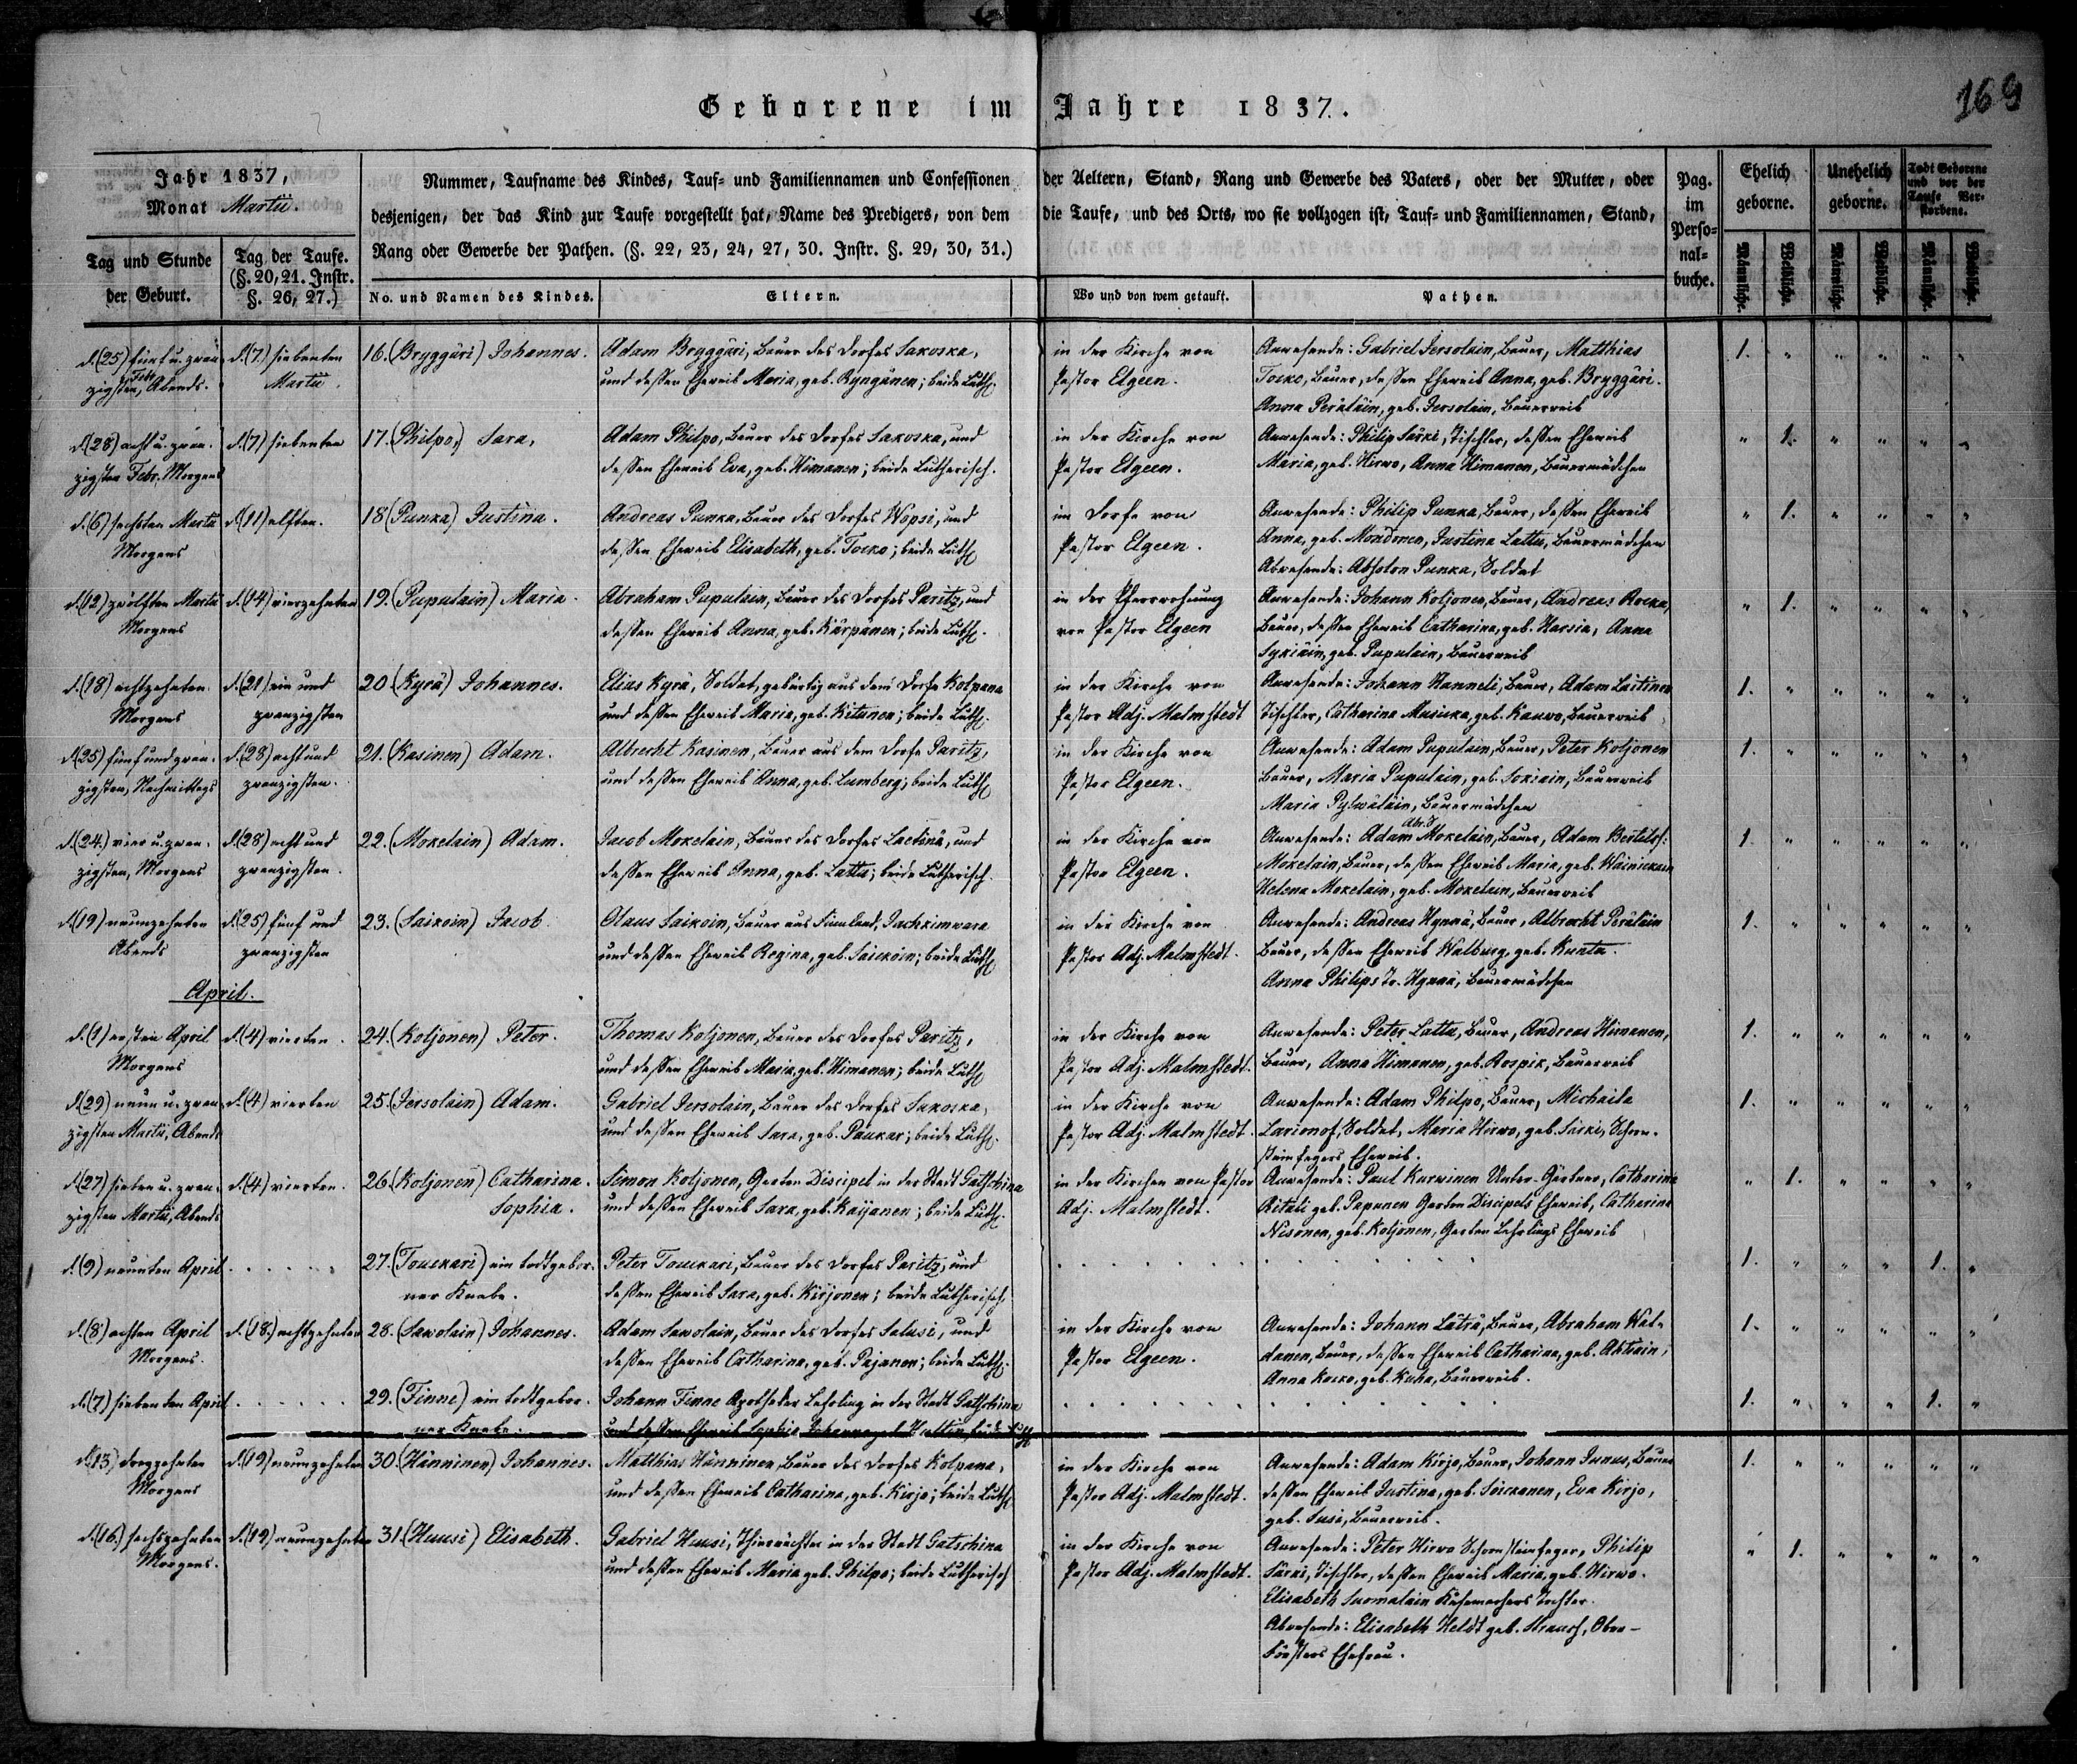 169
Geborene im Jahre 1837.
Jahr 1837,
Monat Martii.
Tag und Stunde
der Geburt.
Tag der Taufe.
(§. 20, 21. Instr.
§. 26, 27.)
Nummer, Taufname des Kindes, Tauf- und Familiennamen und Confessionen der Aeltern, Stand, Rang und Gewerbe des Vaters, oder der Mutter, oder
desjenigen, der das Kind zur Taufe vorgestellt hat, Name des Predigers, von dem die Taufe, und des Orts, wo sie vollzogen ist, Tauf- und Familiennamen, Stand,
Rang oder Gewerbe der Pathen. (§. 22, 23, 24, 27, 30. Instr. §. 29, 30, 31.)
No. und Namen des Kindes.
Eltern.
Wo und von wem getauft.
Pathen.
Pag.
im
Perso-
nal-
buche.
Ehelich
geborne.
Unehelich
geborne.
Todt Geborene
und vor der
Taufe Ver-
storbene.
Männliche.
Weibliche.
Männliche.
Weibliche.
Männliche.
Weibliche.
d. (25) fünf u. zwan-
zigsten Febr., Abends.
d. (7) siebenten
Martii.
16. (Bryggäri) Johannes.
Adam Bryggäri, Bauer des Dorfes Sakoska,
und dessen Eheweib Maria, geb. Ryngänen; beide Luth.
in der Kirche von
Pastor Elgeen.
Anwesende: Gabriel Jersolain, Bauer, Matthias
Tocko, Bauer, dessen Eheweib Anna, geb. Bryggäri.
Anna Peräläin, geb. Jersolain, Bauerweib
1. " " " " "
d. (28) acht u. zwan-
zigsten Febr. Morgens
d. (7) siebenten
17. (Philpo,) Sara,
Adam Philpo, Bauer des Dorfes Sakoska, und
dessen Eheweib Eva, geb. Himanen; beide Lutherisch.
in der Kirche von
Pastor Elgeen.
Anwesende: Philip Särki, Tischler, dessen Eheweib
Maria, geb. Hirwo, Anna Himanen, Bauermädchen
" 1. " " " "
d. (6) sechsten Martii
Morgens
d. (11) elften.
18 (Punka) Justina.
Andreas Punka, Bauer des Dorfes Wopsi, und
dessen Eheweib Elisabeth, geb. Tocko; beide Luth.
im Dorfe von
Pastor Elgeen.
Anwesende: Philip Punka, Bauer, dessen Eheweib
Anna, geb. Mondonen, Justina Lattu, Bauermädchen
Abwesende: Absolon Punka, Soldat
" 1. " " " "
d. (12) zwölften Martii
Morgens
d. (14) vierzehnten
19. (Puputain) Maria.
Abraham Puputain, Bauer des Dorfes Paritz, und
dessen Eheweib Anna, geb. Kärpänen; beide Luth.
in der Pfarrwohnung
von Pastor Elgeen
Anwesende: Johann Koljonen, Bauer, Andreas Rocka,
Bauer, dessen Eheweib Catharina, geb. Harsia, Anna
geb. Puputain, Bauerweib
" 1. " " " "
d. (18) achtzehnten
Morgens
d. (21) ein und
zwanzigsten
20. (Kyrä) Johannes.
Elias Kyrä, Soldat, gebürtig aus dem Dorfe Kolpana
und dessen Eheweib Maria, geb. Ketunen; beide Luth.
in der Kirche von
Pastor Adj. Malmstedt
Anwesende: Johann Hanneli, Bauer, Adam Laitinen
Tischler, Catharina Musicka, geb. Kauwo, Bauerweib
1. " " " " "
d. (25) fünf und zwan-
zigsten, Nachmittags
d. (28) acht und
zwanzigsten.
21. (Kasinen) Adam.
Albrecht Kasinen, Bauer aus dem Dorfe Paritz,
und dessen Eheweib Anna, geb. Lumberg; beide Luth.
in der Kirche von
Pastor Elgeen.
Anwesende: Adam Puputain, Bauer, Peter Koljonen
Bauer, Maria Puputain, geb. Sokiain, Bauerweib
Maria Pylwäläin, Bauermädchen
1. " " " " "
d. (24.) vier u. zwan-
zigsten, Morgens
d. (28) acht und
zwanzigsten.
22. (Mokelain) Adam.
Jacob Mokelain, Bauer des Dorfes Lactinä, und
dessen Eheweib Anna, geb. Lattu; beide Lutherisch.
in der Kirche von
Pastor Elgeen.
Anwesende: Adam Abr. S. Mokelain, Bauer, Adam Bertilss:
Mokelain, Bauer, dessen Eheweib Maria, geb. Wäinickäin
Helena Mokelain, geb. Mokelain, Bauerweib
1. " " " " "
d. (19) neunzehnten
Abends
d. (25) fünf und
zwanzigsten
23. (Saikoin) Jacob.
Olaus Saikoin, Bauer aus Finnland, Jachkimwara
und dessen Eheweib Regina, geb. Saickoin; beide Luth.
in der Kirche von
Pastor Adj. Malmstedt.
Anwesende: Andreas Hynnä, Bauer, Albrecht Peräläin
Bauer, dessen Eheweib Walburg, geb. Kunta.
Anna Philips Tr. Hynnä, Bauermädchen
1. " " " " "
April.
d. (1) ersten April
Morgens
d. (4) vierten.
24. (Koljonen) Peter.
Thomas Koljonen, Bauer des Dorfes Paritz,
und dessen Eheweib Maria, geb. Himanen; beide Luth.
in der Kirche von
Pastor Adj. Malmstedt.
Anwesende: Peter Lattu, Bauer, Andreas Himanen,
Bauer, Anna Himanen, geb. Rospik, Bauerweib
1. " " " " "
d. (29) neun u. zwan-
zigsten Martii, Abends
d. (4) vierten
25. (Jersolain) Adam.
Gabriel Jersolain, Bauer des Dorfes Sakoska,
und dessen Eheweib Sara, geb. Paukar; beide Luth.
in der Kirche von
Pastor Adj. Malmstedt.
Anwesende: Adam Philpo, Bauer, Michaila
Larionof, Soldat, Maria Hirwo, geb. Särki, Schorn-
steinfegers Eheweib.
1. " " " " "
d. (27) sieben u. zwan-
zigsten Martii, Abends
d. (4) vierten.
26. (Koljonen) Catharina
Sophia.
Simon Koljonen, Garten Discipel in der Stadt Gatschina
und dessen Eheweib Sara, geb. Kaijanen; beide Luth.
in der Kirchen von Pastor
Adj. Malmstedt.
Anwesende: Paul Karwinen Unter-Gärtner, Catharina
Ritali geb. Papunen Garten Discipels Eheweib, Catharina
Nisonen, geb. Koljonen, Garten Lehrlings Eheweib
" 1. " " " "
d. (9) neunten April
27. (Touckari) ein todtgebor-
ner Knabe.
Peter Touckari, Bauer des Dorfes Paritz, und
dessen Eheweib Sara, geb. Kirjonen; beide Lutherisch.
1. " " " 1. "
d. (8) achten April
Morgens.
d. (18.) achtzehnten
28. (Sawolain) Johannes.
Adam Sawolain, Bauer des Dorfes Salusi, und
dessen Eheweib Catharina, geb. Pajanen; beide Luth.
in der Kirche von
Pastor Elgeen.
Anwesende: Johann Läträ, Bauer, Abraham Wäl-
danen, Bauer, dessen Eheweib Catharina, geb. Ahtiain,
Anna Kocko, geb. Kuha, Bauerweib.
1. " " " " "
d. (7) siebenten April
29. (Finne) ein todtgebor-
ner Knabe.
Johann Finne Apotheker Lehrling in der Stadt Gatschina
und dessen Eheweib Sophia Johanna geb. beide Luth
1. " " " 1. "
d. (13) dreyzehnten
Morgens
d. (19) neunzehnten
30. (Hänninen) Johannes.
Matthias Hänninen, Bauer des Dorfes Kolpana,
und dessen Eheweib Catharina, geb. Kirjo; beide Luth.
in der Kirche von
Pastor Adj. Malmstedt.
Anwesende: Adam Kirjo, Bauer, Johann Junus, Bauer
dessen Eheweib Justina, geb. Soickanen, Eva Kirjo,
geb. Susi, Bauerweib.
1. " " " " "
d. (16.) sechszehnten
Morgens.
d. (19) neunzehnten
31. (Huusi) Elisabeth.
Gabriel Huusi, Thierwächter in der Stadt Gatschina
und dessen Eheweib Maria geb. Philpo; beide Lutherisch
in der Kirche von
Pastor Adj. Malmstedt.
Anwesende: Peter Hirwo Schornsteinfeger, Philip
Särki, Tischler, dessen Eheweib Maria, geb. Hirwo.
Elisabeth Suomalain Tochter.
Abwesende: Elisabeth Heldt geb. Strauch, Ober-
försters Ehefrau.
" 1. " " " "